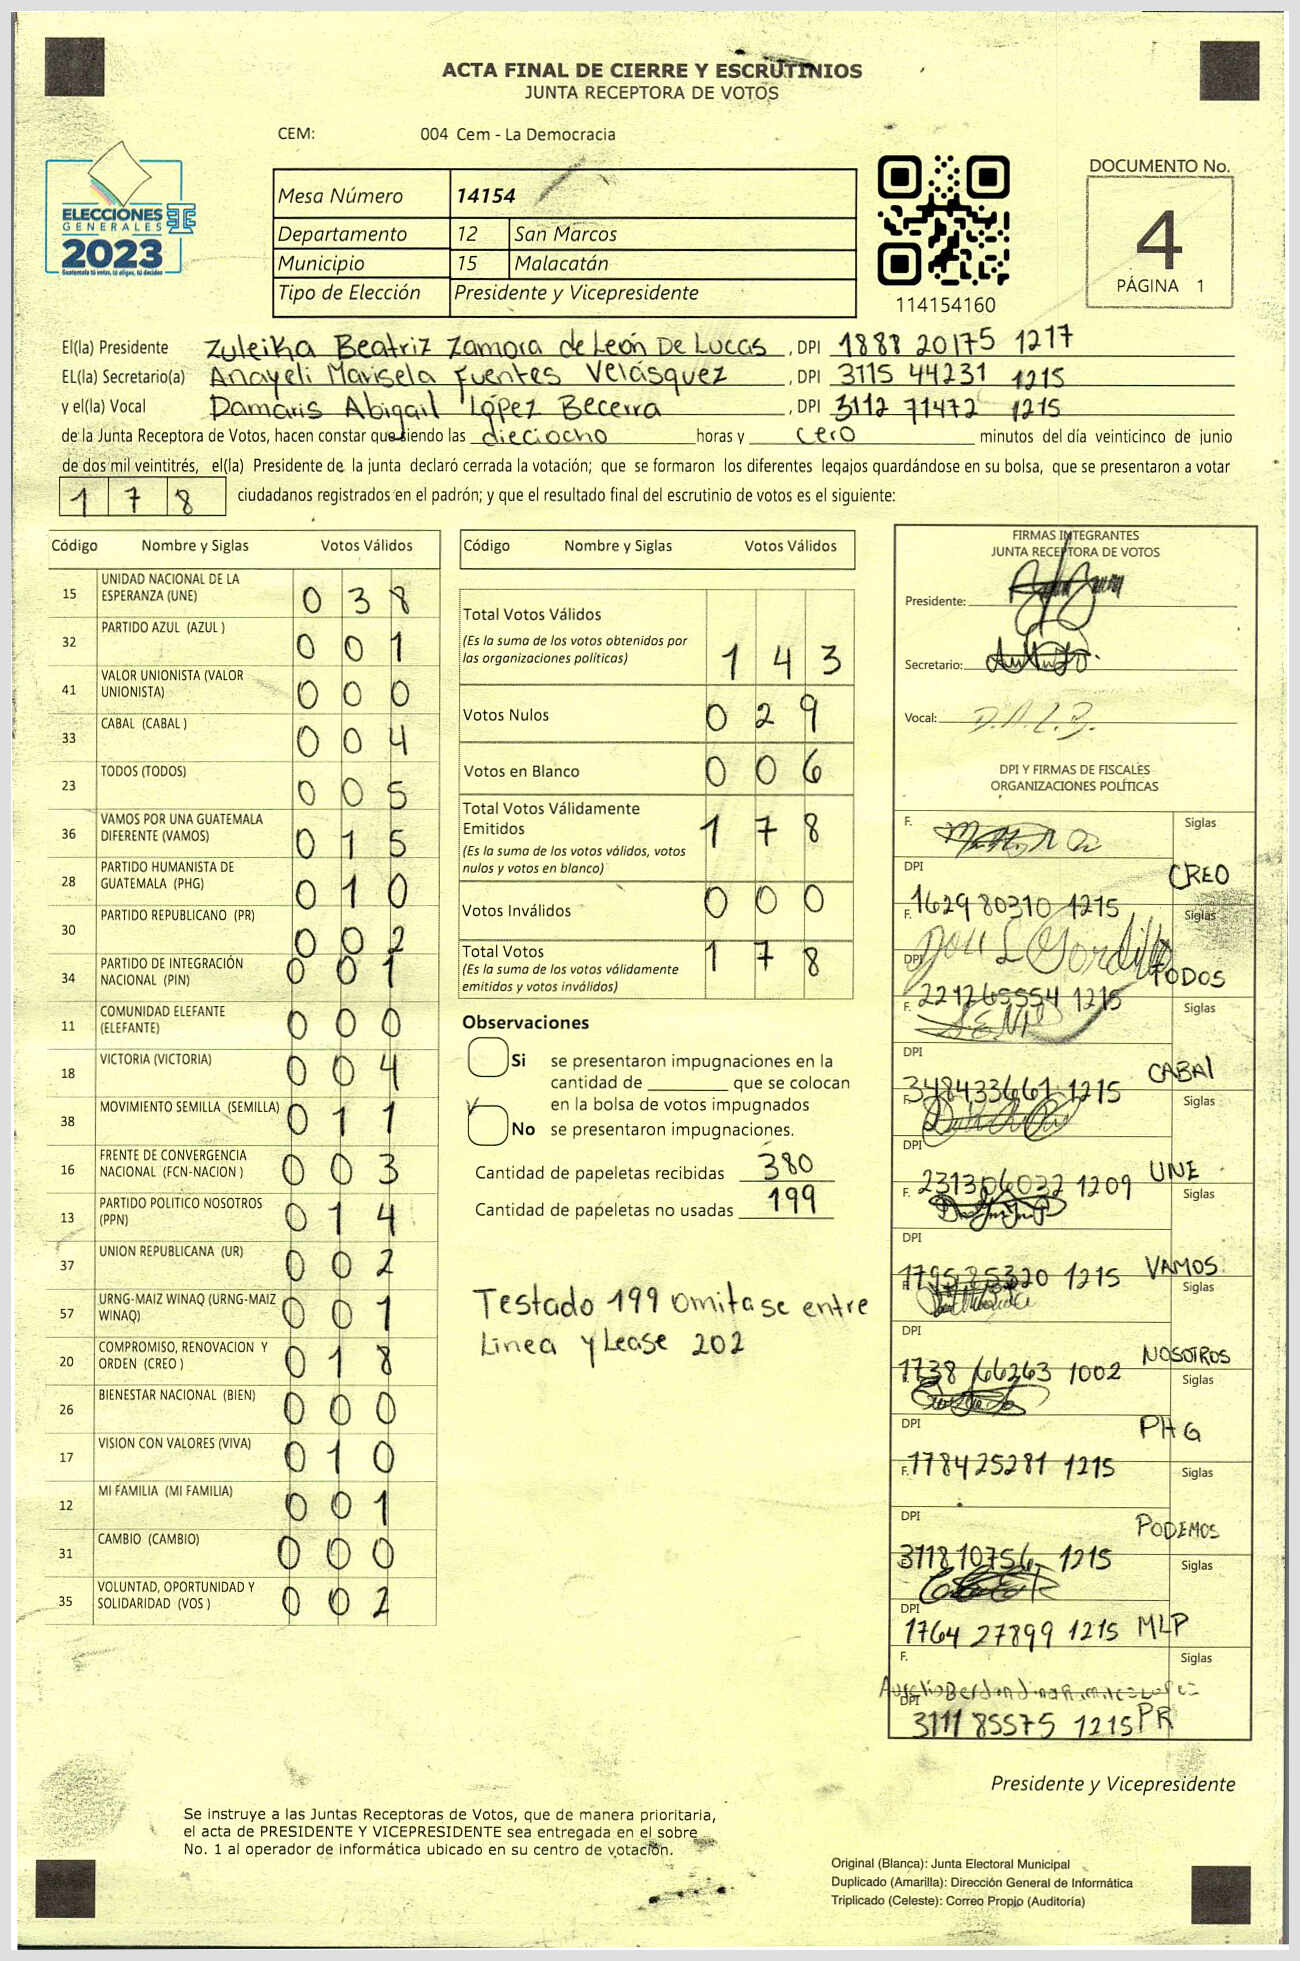 ACTA FINAL DE CIERRE Y ESCRUTINIOS
JUNTA RECEPTORA DE VOTOS
CEM: 004 Cem - La Democracia
ELECCIONES
GENERALES
2023
Guatemala tú votas, tú eliges, tú decides
Mesa Número 14154
Departamento 12 San Marcos
Municipio 15 Malacatán
Tipo de Elección Presidente y Vicepresidente
114154160
DOCUMENTO No.
4
PÁGINA 1
El(la) Presidente Zuleika Beatriz Zamora de León De Lucas , DPI 1888 20175 1217
EL(la) Secretario(a) Anayeli Marisela Fuentes Velásquez , DPI 3115 44231 1215
y el(la) Vocal Damaris Abigail López Becerra , DPI 3112 71472 1215
de la Junta Receptora de Votos, hacen constar que siendo las dieciocho horas y cero minutos del día veinticinco de junio
de dos mil veintitrés, el(la) Presidente de la junta declaró cerrada la votación; que se formaron los diferentes legajos guardándose en su bolsa, que se presentaron a votar
1 7 8 ciudadanos registrados en el padrón; y que el resultado final del escrutinio de votos es el siguiente:
Código Nombre y Siglas Votos Válidos
15 UNIDAD NACIONAL DE LA
ESPERANZA (UNE) 0 3 8
32 PARTIDO AZUL (AZUL ) 0 0 1
41 VALOR UNIONISTA (VALOR
UNIONISTA) 0 0 0
33 CABAL (CABAL ) 0 0 4
23 TODOS (TODOS) 0 0 5
36 VAMOS POR UNA GUATEMALA
DIFERENTE (VAMOS) 0 1 5
28 PARTIDO HUMANISTA DE
GUATEMALA (PHG) 0 1 0
30 PARTIDO REPUBLICANO (PR) 0 0 2
34 PARTIDO DE INTEGRACIÓN
NACIONAL (PIN) 0 0 1
11 COMUNIDAD ELEFANTE
(ELEFANTE) 0 0 0
18 VICTORIA (VICTORIA) 0 0 4
38 MOVIMIENTO SEMILLA (SEMILLA) 0 1 1
16 FRENTE DE CONVERGENCIA
NACIONAL (FCN-NACION ) 0 0 3
13 PARTIDO POLITICO NOSOTROS
(PPN) 0 1 4
37 UNION REPUBLICANA (UR) 0 0 2
57 URNG-MAIZ WINAQ (URNG-MAIZ
WINAQ) 0 0 1
20 COMPROMISO, RENOVACION Y
ORDEN (CREO ) 0 1 8
26 BIENESTAR NACIONAL (BIEN) 0 0 0
17 VISION CON VALORES (VIVA) 0 1 0
12 MI FAMILIA (MI FAMILIA) 0 0 1
31 CAMBIO (CAMBIO) 0 0 0
35 VOLUNTAD, OPORTUNIDAD Y
SOLIDARIDAD (VOS ) 0 0 2
Código Nombre y Siglas Votos Válidos
Total Votos Válidos
(Es la suma de los votos obtenidos por
las organizaciones políticas) 1 4 3
Votos Nulos 0 2 9
Votos en Blanco 0 0 6
Total Votos Válidamente
Emitidos 1 7 8
(Es la suma de los votos válidos, votos
nulos y votos en blanco)
Votos Inválidos 0 0 0
Total Votos 1 7 8
(Es la suma de los votos válidamente
emitidos y votos inválidos)
Observaciones
Si se presentaron impugnaciones en la
cantidad de ________ que se colocan
en la bolsa de votos impugnados
No se presentaron impugnaciones.
Cantidad de papeletas recibidas 380
Cantidad de papeletas no usadas 199
Testado 199 omitase entre
Linea y Lease 202
FIRMAS INTEGRANTES
JUNTA RECEPTORA DE VOTOS
Presidente:
Secretario:
Vocal: D.A.L.B.
DPI Y FIRMAS DE FISCALES
ORGANIZACIONES POLÍTICAS
F. Siglas
DPI CREO
1629 80310 1215
F. Siglas
DPI TODOS
221265554 1215
F. Siglas
DPI CABAl
348433661 1215
F. Siglas
DPI UNE
231306032 1209
F. Siglas
DPI VAMOS
1215
F. Siglas
DPI NOSOTROS
1738 66263 1002
F. Siglas
DPI PHG
178425281 1215
F. Siglas
DPI PODEMOS
3118 10756 1215
Siglas
DPI
1764 27899 1215 MLP
F. Siglas
DPI
3111 85575 1215 PR
Presidente y Vicepresidente
Se instruye a las Juntas Receptoras de Votos, que de manera prioritaria,
el acta de PRESIDENTE Y VICEPRESIDENTE sea entregada en el sobre
No. 1 al operador de informática ubicado en su centro de votación.
Original (Blanca): Junta Electoral Municipal
Duplicado (Amarilla): Dirección General de Informática
Triplicado (Celeste): Correo Propio (Auditoría)